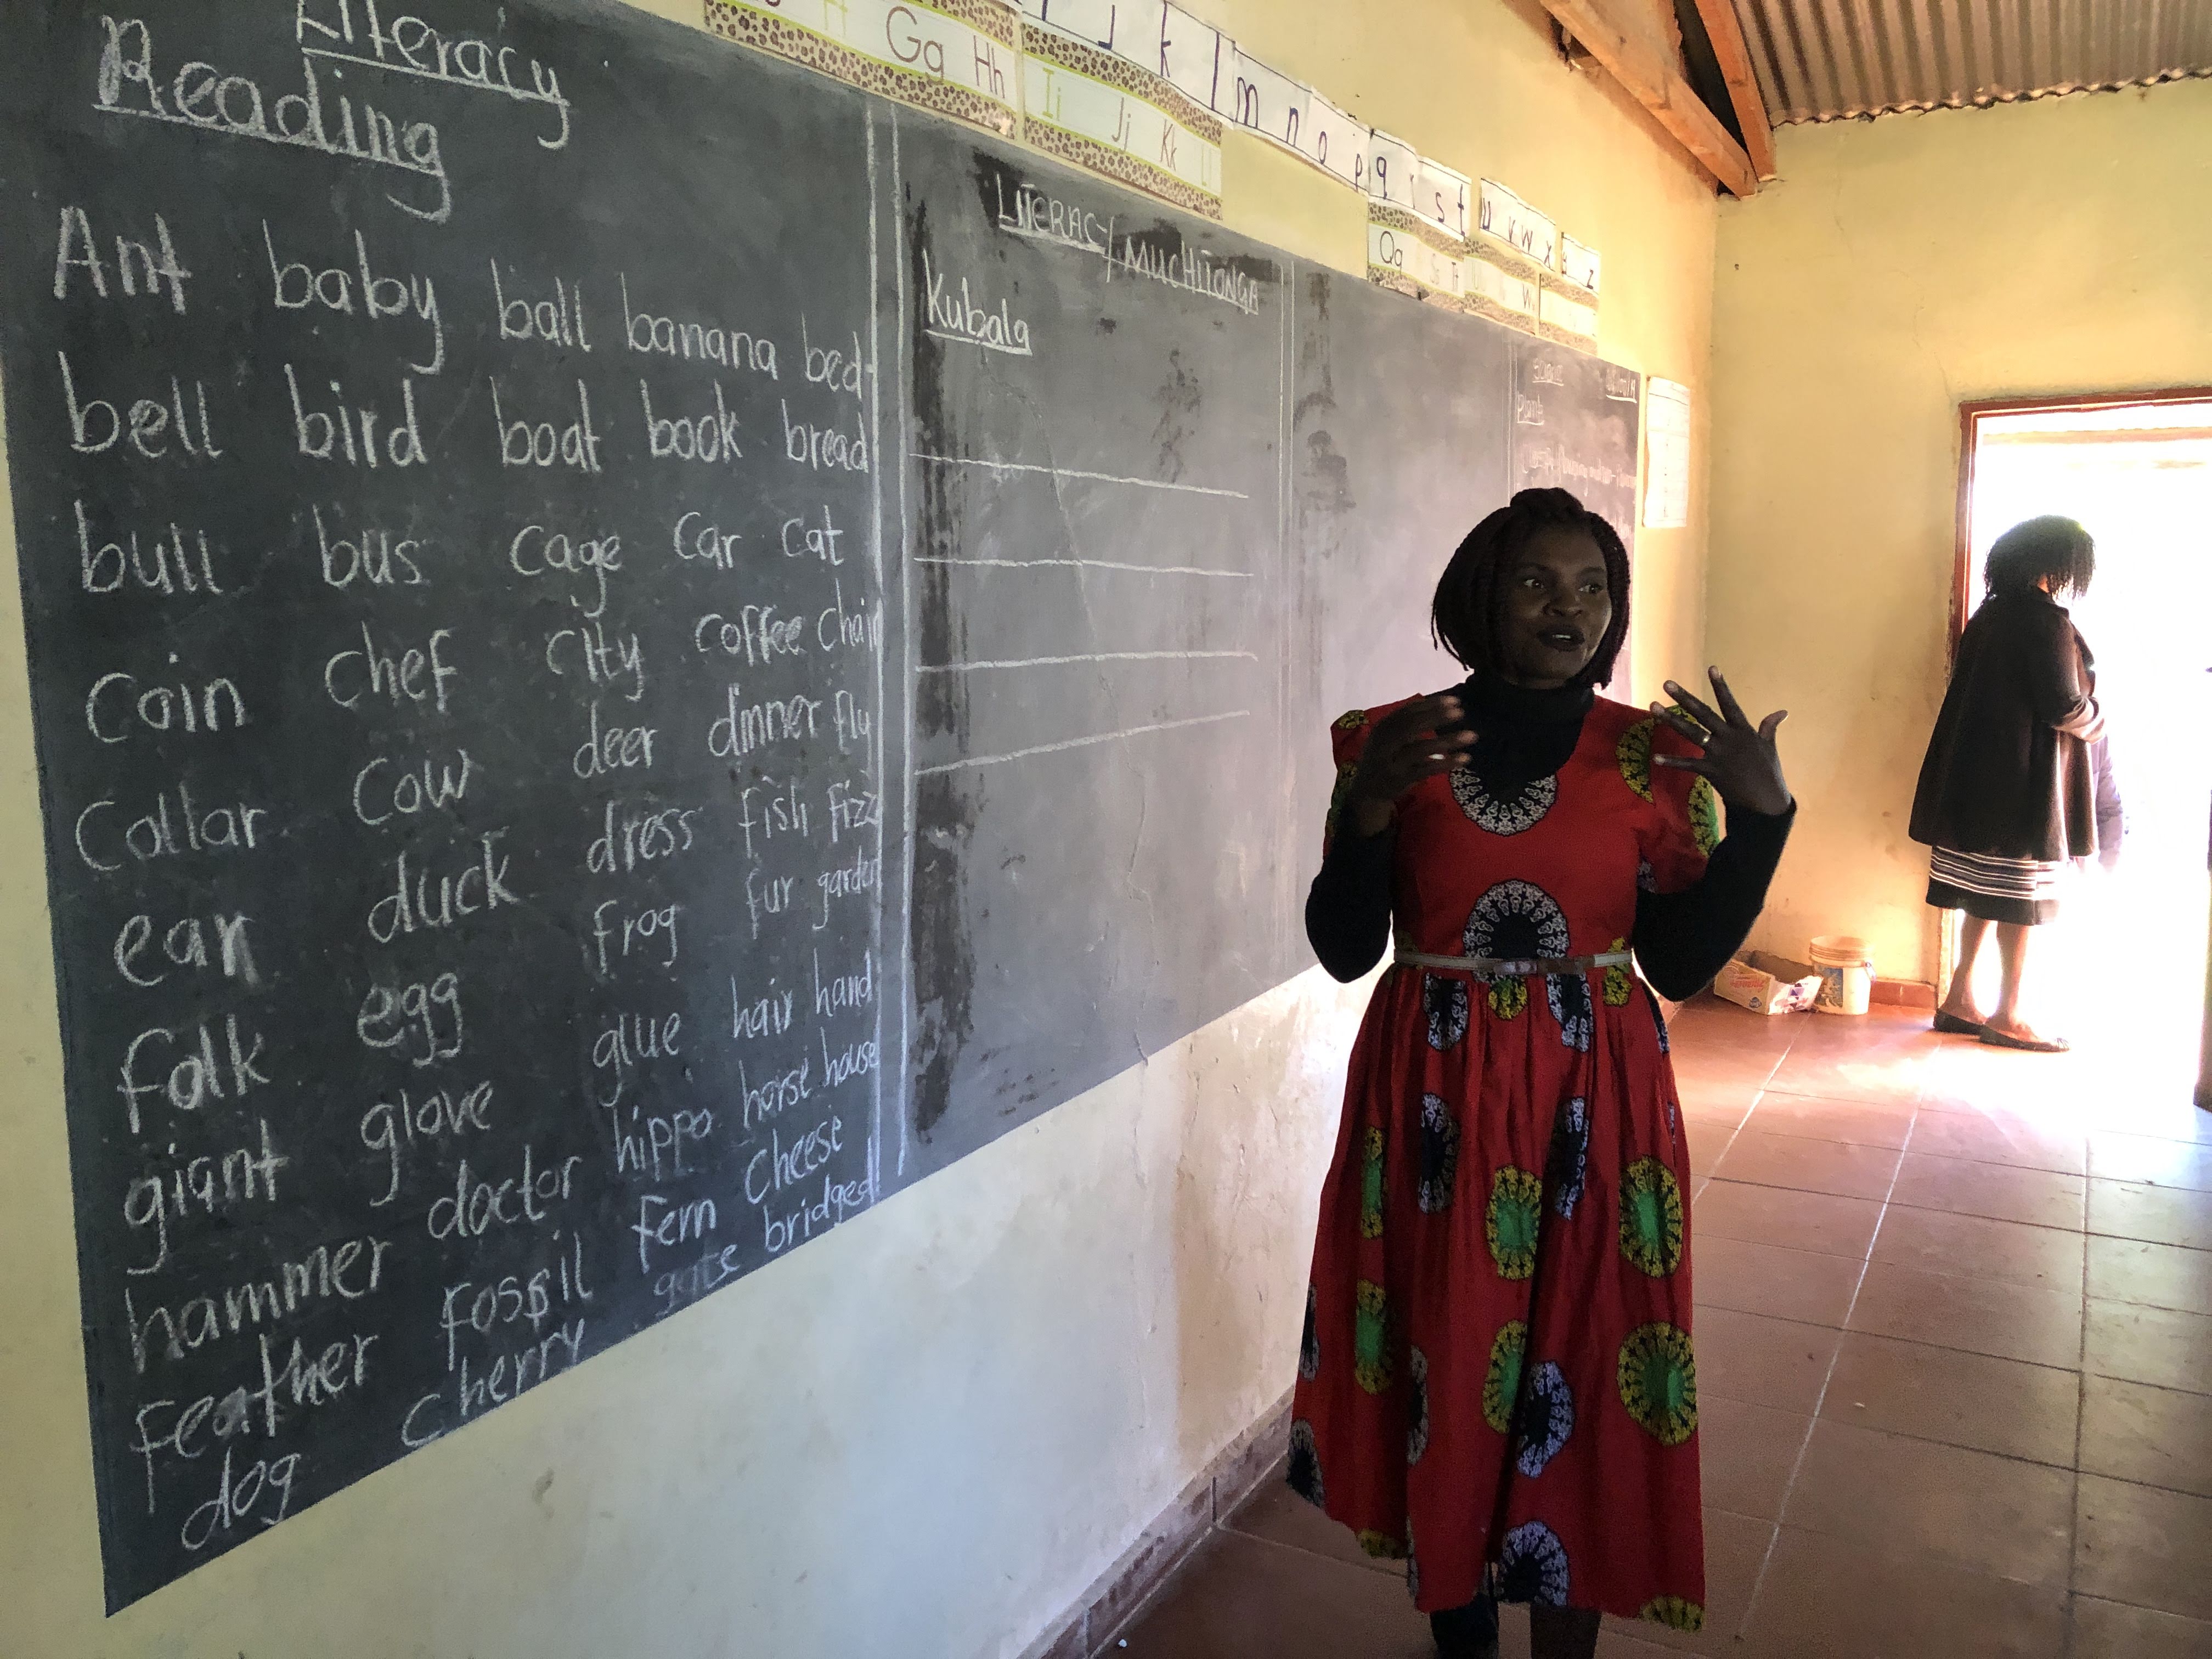 Literacy
Reading
Ant baby ball banana bed
bell bird boat book bread
bull bus cage car cat
Coin chef city coffee chair
Collar cow deer dinner fly
ear duck dress fish fizz
folk egg frog fur garden
giant glove glue hair hand
hammer doctor hippo horse house
Feather Fossil fern cheese
dog cherry gate bridged
LITERACY MUCHITONGA
Kubala
Gg Hh
Ii Jj Kk
k l m n o p q r s t u v w x y z
Qq